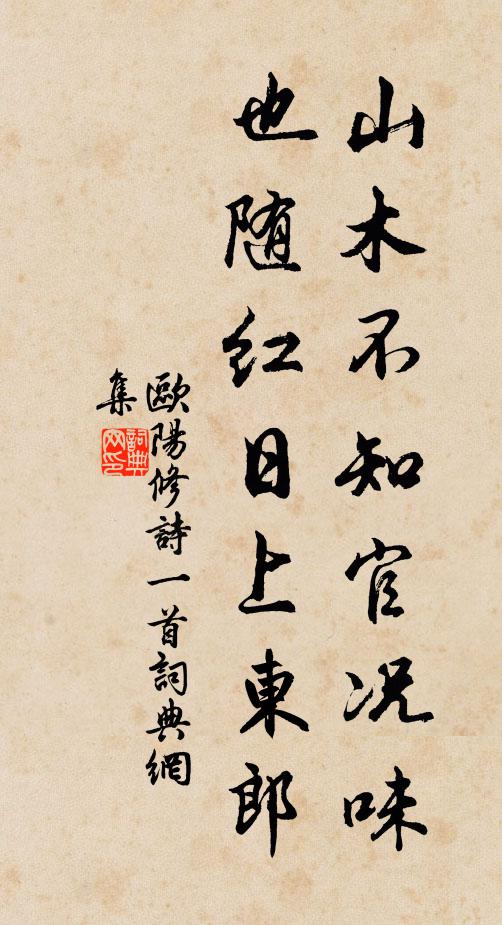 山木不知官况味
也随紅日上東郎
歐陽修詩一首詞典網
集
詞典网印